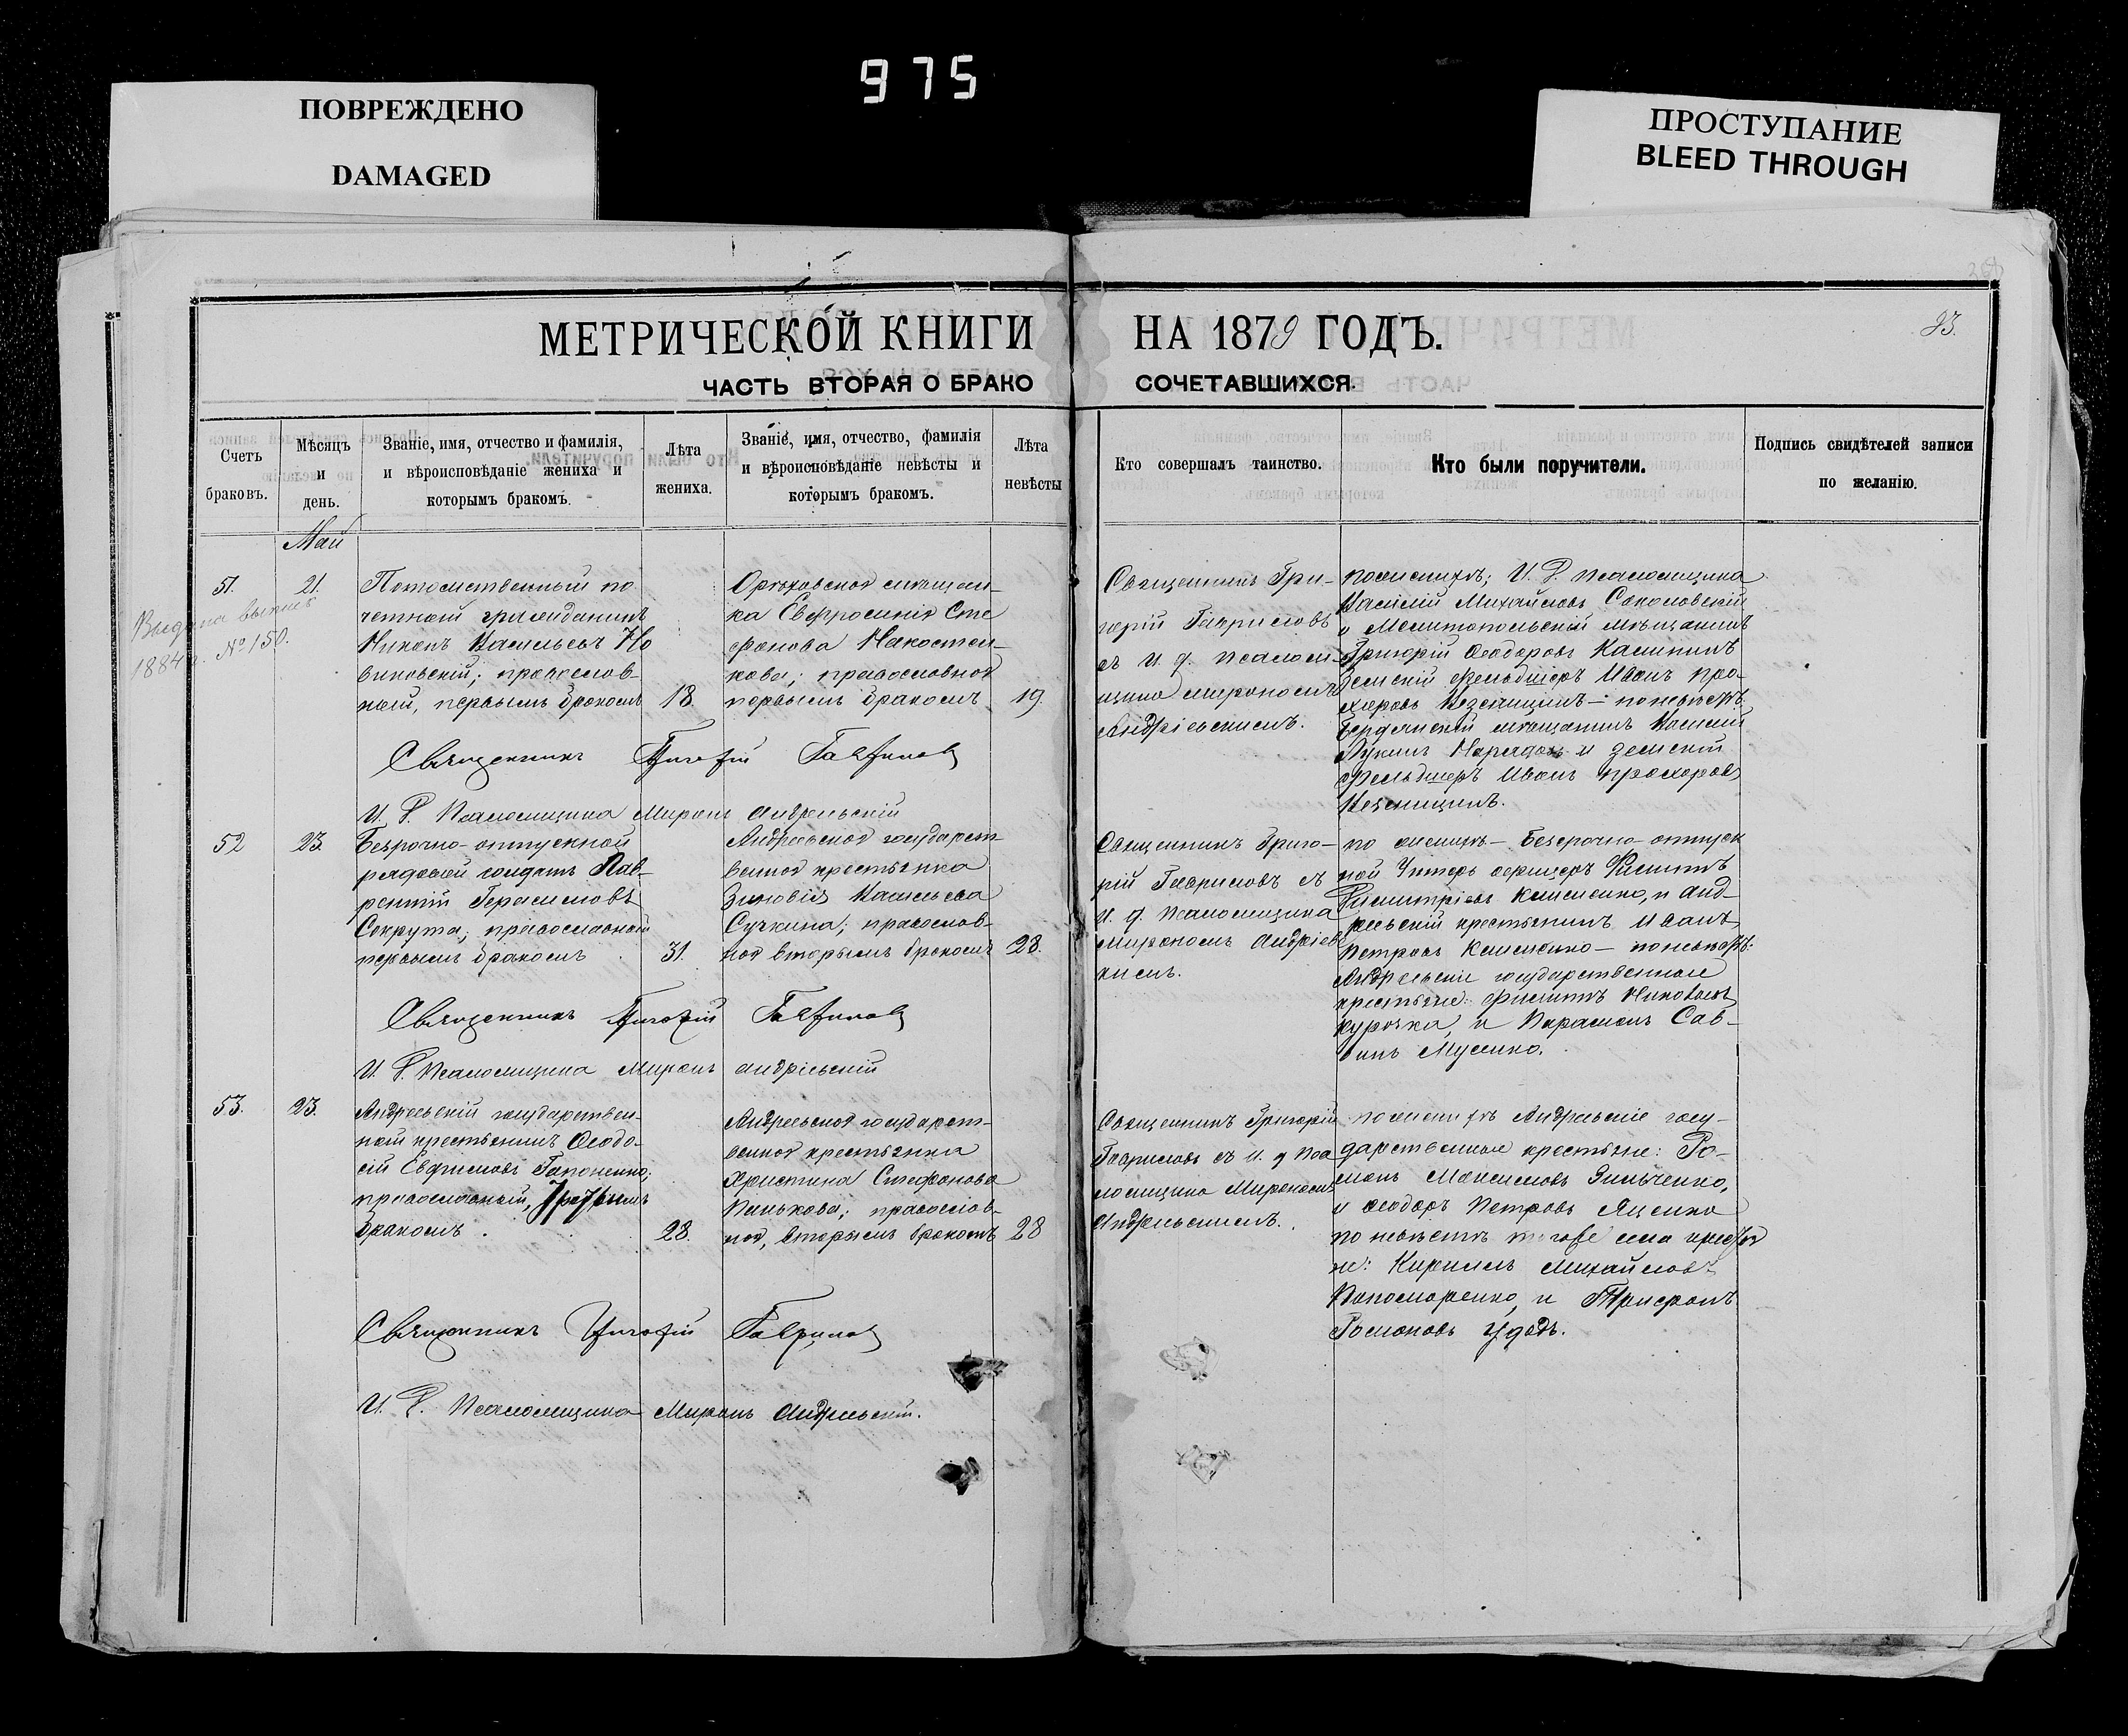 975
ПОВРЕЖДЕНО
DAMAGED
ПРОСТУПАНИЕ
BLEED THROUGH
МЕТРИЧЕСКОЙ КНИГИ НА 1879 ГОДЪ.
23.
ЧАСТЬ ВТОРАЯ О БРАКО СОЧЕТАВШИХСЯ.
Счетъ браковъ.
Мѣсяцъ и день.
Званіе, имя, отчество и фамилія,
и вѣроисповѣданіе жениха и
которымъ бракомъ.
Лѣта жениха.
Званіе, имя, отчество, фамилія
и вѣроисповѣданіе невѣсты и
которымъ бракомъ.
Лѣта невѣсты
Кто совершалъ таинство.
Кто были поручители.
Подпись свидѣтелей записи
по желанію.
Май
Выдана выпись
1884 г. № 150.
51.
21.
Потомственный по
четный гражданинъ
Никонъ Васильевъ Но
виковскій; православ-
ный, первымъ бракомъ
18.
Орѣховская мѣщан-
ка Евфросинія Сте
фанова
кова; православная
первымъ бракомъ
19.
Священникъ Гри-
горій Гавриловъ
съ И. д. псалом-
щика Мирономъ
Андріевскимъ.
по женихѣ; И. Д. Псаломщика
Василій Михайловъ Соколовскій
и Мелитопольскій мѣщанинъ
Григорій Ѳеодоровъ Калининъ
Земскій Фельдшеръ Иванъ Про-
хоровъ — по невѣстѣ:
Бердянскій мѣщанинъ Василій
Лукинъ и земскій
Фельдшеръ Иванъ Прохоровъ
Священникъ Григорій Гавриловъ
И. Д. Псаломщика Миронъ Андріевскій
52
23.
Безрочно-отпускной
рядовой солдатъ Лав-
рентій Герасимовъ
Секрута; православный
первымъ бракомъ
31.
Андреевская государст-
венная крестьянка
Зиновія Васильева
Сучкина; православ-
ная вторымъ бракомъ
28.
Священникъ Григо-
рій Гавриловъ съ
И. д. Псаломщика
Мирономъ Андріевс
кимъ.
по женихѣ — Безсрочно-отпуск
ной Унтеръ офицеръ Филиппъ
Димитріевъ Клименко, и Анд-
реевскій крестьянинъ Иванъ
Петровъ Клименко — по невѣстѣ:
Андреевскіе государственные
крестьяне: Филиппъ
Курочка, и Парамонъ Сав-
винъ Мусенко.
Священникъ Григорій Гавриловъ
И. Д. Псаломщика Миронъ Андріевскій
53.
23.
Андреевскій государствен-
ный крестьянинъ Ѳеодо-
сій Евфимовъ Гапоненко;
православный, третьимъ
бракомъ.
28.
Андреевская государст-
венная крестьянка
Христина Стефанова
Панькова; православ-
ная, вторымъ бракомъ
28
Священникъ Григорій
Гавриловъ съ И. д Пса
ломщика Мирономъ
Андріевскимъ.
по женихѣ Андреевскіе госу-
дарственные крестьяне: Ро-
манъ Максимовъ Зинченко,
и Ѳеодоръ Петровъ Яценко
по невѣстѣ тогоже села крестья
не: Кириллъ Михайловъ
Пономаренко, и Трифонъ
Романовъ Удодъ.
Священникъ Григорій Гавриловъ
И. Д. Псаломщика Миронъ Андріевскій.